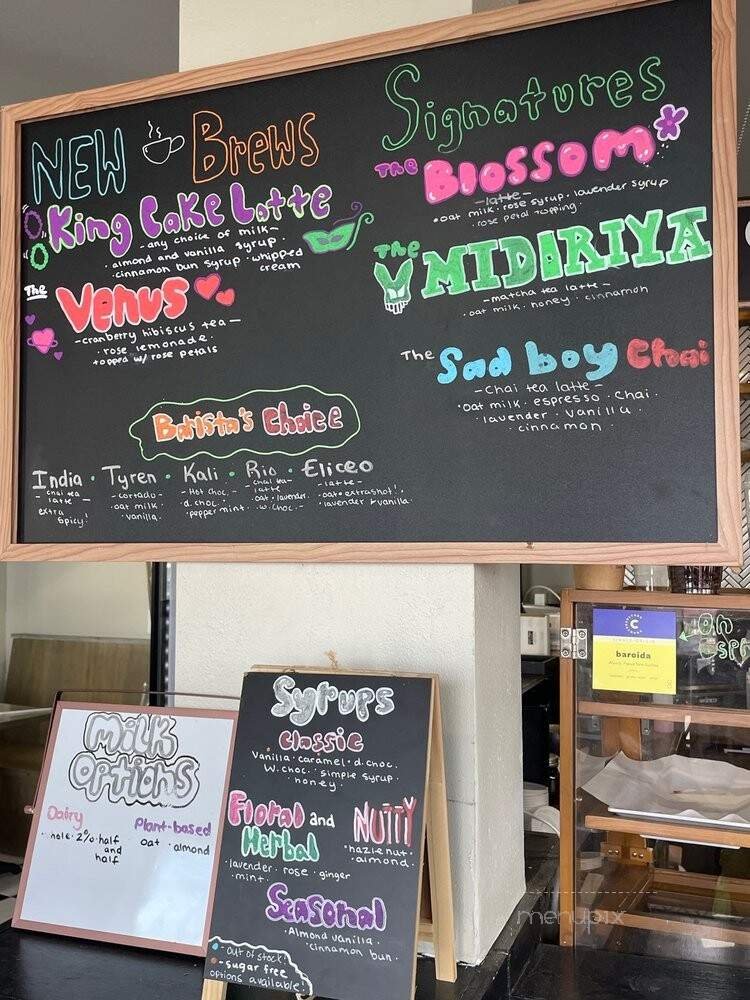 NEW Brews
King Cake Latte
- any choice of milk -
· almond and vanilla syrup ·
· cinnamon bun syrup · whipped
cream
The
Venus
- cranberry hibiscus tea -
· rose lemonade ·
topped w/ rose petals
Signatures
The Blossom
- latte -
· oat milk · rose syrup · lavender syrup
· rose petal topping ·
The MIDIRIYA
- matcha tea latte -
· oat milk · honey · cinnamon
The Sad boy Chai
- chai tea latte -
· oat milk · espresso · chai ·
· lavender · vanilla ·
· cinnamon ·
Barista's Choice
India · Tyren · Kali · Rio · Eliceo
India
- chai tea
latte -
extra
spicy!
- cortado -
oat milk
· vanilla ·
- Hot choc. -
· d. choc. ·
· peppermint ·
- chai tea
latte -
oat · lavender ·
· w. choc ·
- latte -
· oat · extra shot! ·
· lavender + vanilla ·
Milk
options
Dairy
2% · half
and
half
Plant-based
oat · almond
Syrups
Classic
Vanilla · caramel · d. choc.
W. choc · simple syrup ·
· honey ·
Floral and
Herbal
· lavender · rose · ginger
· mint ·
NUTTY
· hazlenut ·
· almond ·
Seasonal
Almond vanilla ·
· cinnamon bun ·
- out of stock!
- sugar free
options available!
C
baroida
menupix